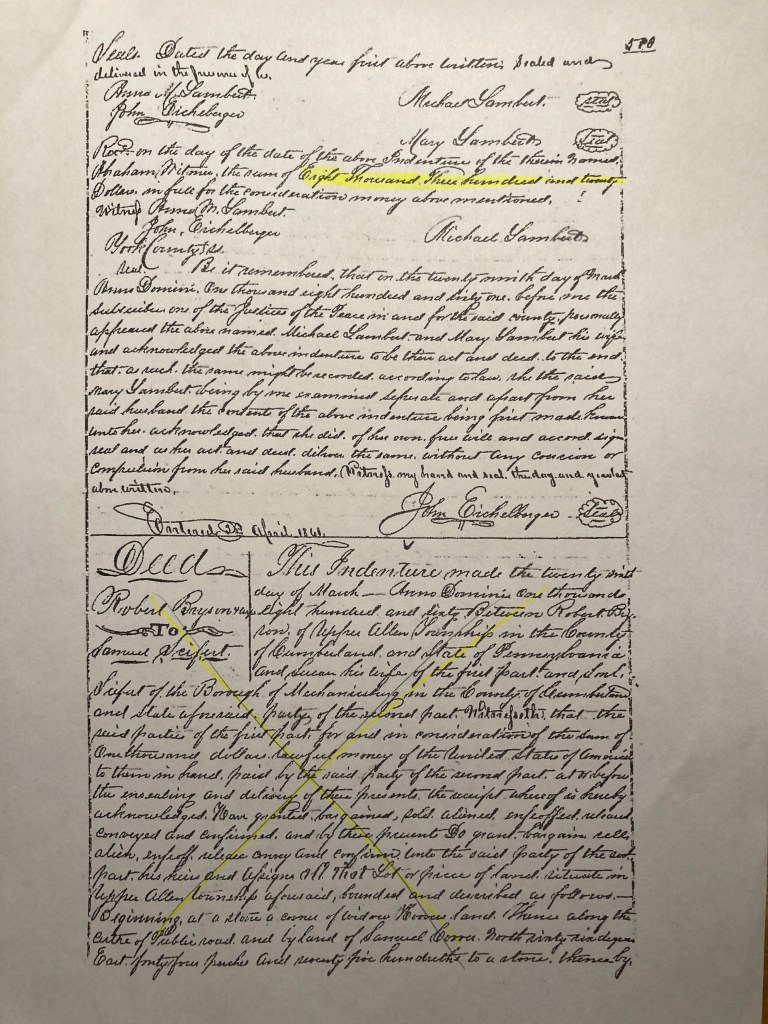 580
Seals. Dated the day and year first above written; Sealed and
delivered in the presence of us.
Anna M. Lambert.
Michael Lambert. Seal
John Eichelberger
Mary Lambert Seal
Recd. on the day of the date of the above Indenture of the therein named,
Abraham, Witmer, the sum of Eight Thousand Three hundred and twenty
Dollars, in full for the consideration money above mentioned,
Witness Anna M. Lambert.
John, Eichelberger
Michael Lambert
York County Ss.
seal. Be it remembered, that on the twenty ninth day of March
Anno Domini. One thousand eight hundred and sixty one. before me the
Subscriber one of the Justices of the Peace in and for the said county, personally
appeared the above named Michael Lambert and Mary Lambert his wife
and acknowledged the above indenture to be their act and deed. to the end
that. as such. the same might be recorded. according to law. She the said
Mary Lambert. being by me examined seperate and apart from her
said husband the contents of the above indenture being first made known
unto her. acknowledged. that she did. of her own. free will and accord sign
seal and as her act. and deed. deliver the same. without any coercion or
compulsion from her said husband. Witness my hand and seal. the day and year last
above written.
John Eichelberger Seal
Entered April 1861.
Deed
Robert Bryson
To
Samuel Seifert.
This Indenture made the twenty
day of March — Anno Domini One thousand
eight hundred and sixty Between Robert Bry
son. of Upper Allen Township in the County
of Cumberland. and State of Pennsylvania
and Susan his wife. of the first part. and Saml.
Seifert of the Borough of Mechanicsburg in the County of Cumberland
and state aforesaid. party of the second part. Witnesseth. that the
said parties of the first part. for and in consideration of the sum of
One thousand dollars. lawful money of the United States of America
to them in hand. paid by the said party of the second part. at & before
the ensealing and delivery of these presents, the receipt whereof is hereby
acknowledged. Have granted. bargained, sold. aliened, enfeoffed. released
conveyed and confirmed. and by these presents Do grant. bargain sell
alien, enfeoff. release convey and confirm. unto the said party of the sec.
part. his heirs and assigns All That Lot or piece of land. situate in
Upper Allen township aforesaid, bounded and described as follows.—
Beginning, at a stone a corner of widow land. Thence along the
centre of Public road. and by land of Samuel North sixty six degrees
East. forty four perches and seventy five hundredths to a stone. thence by.